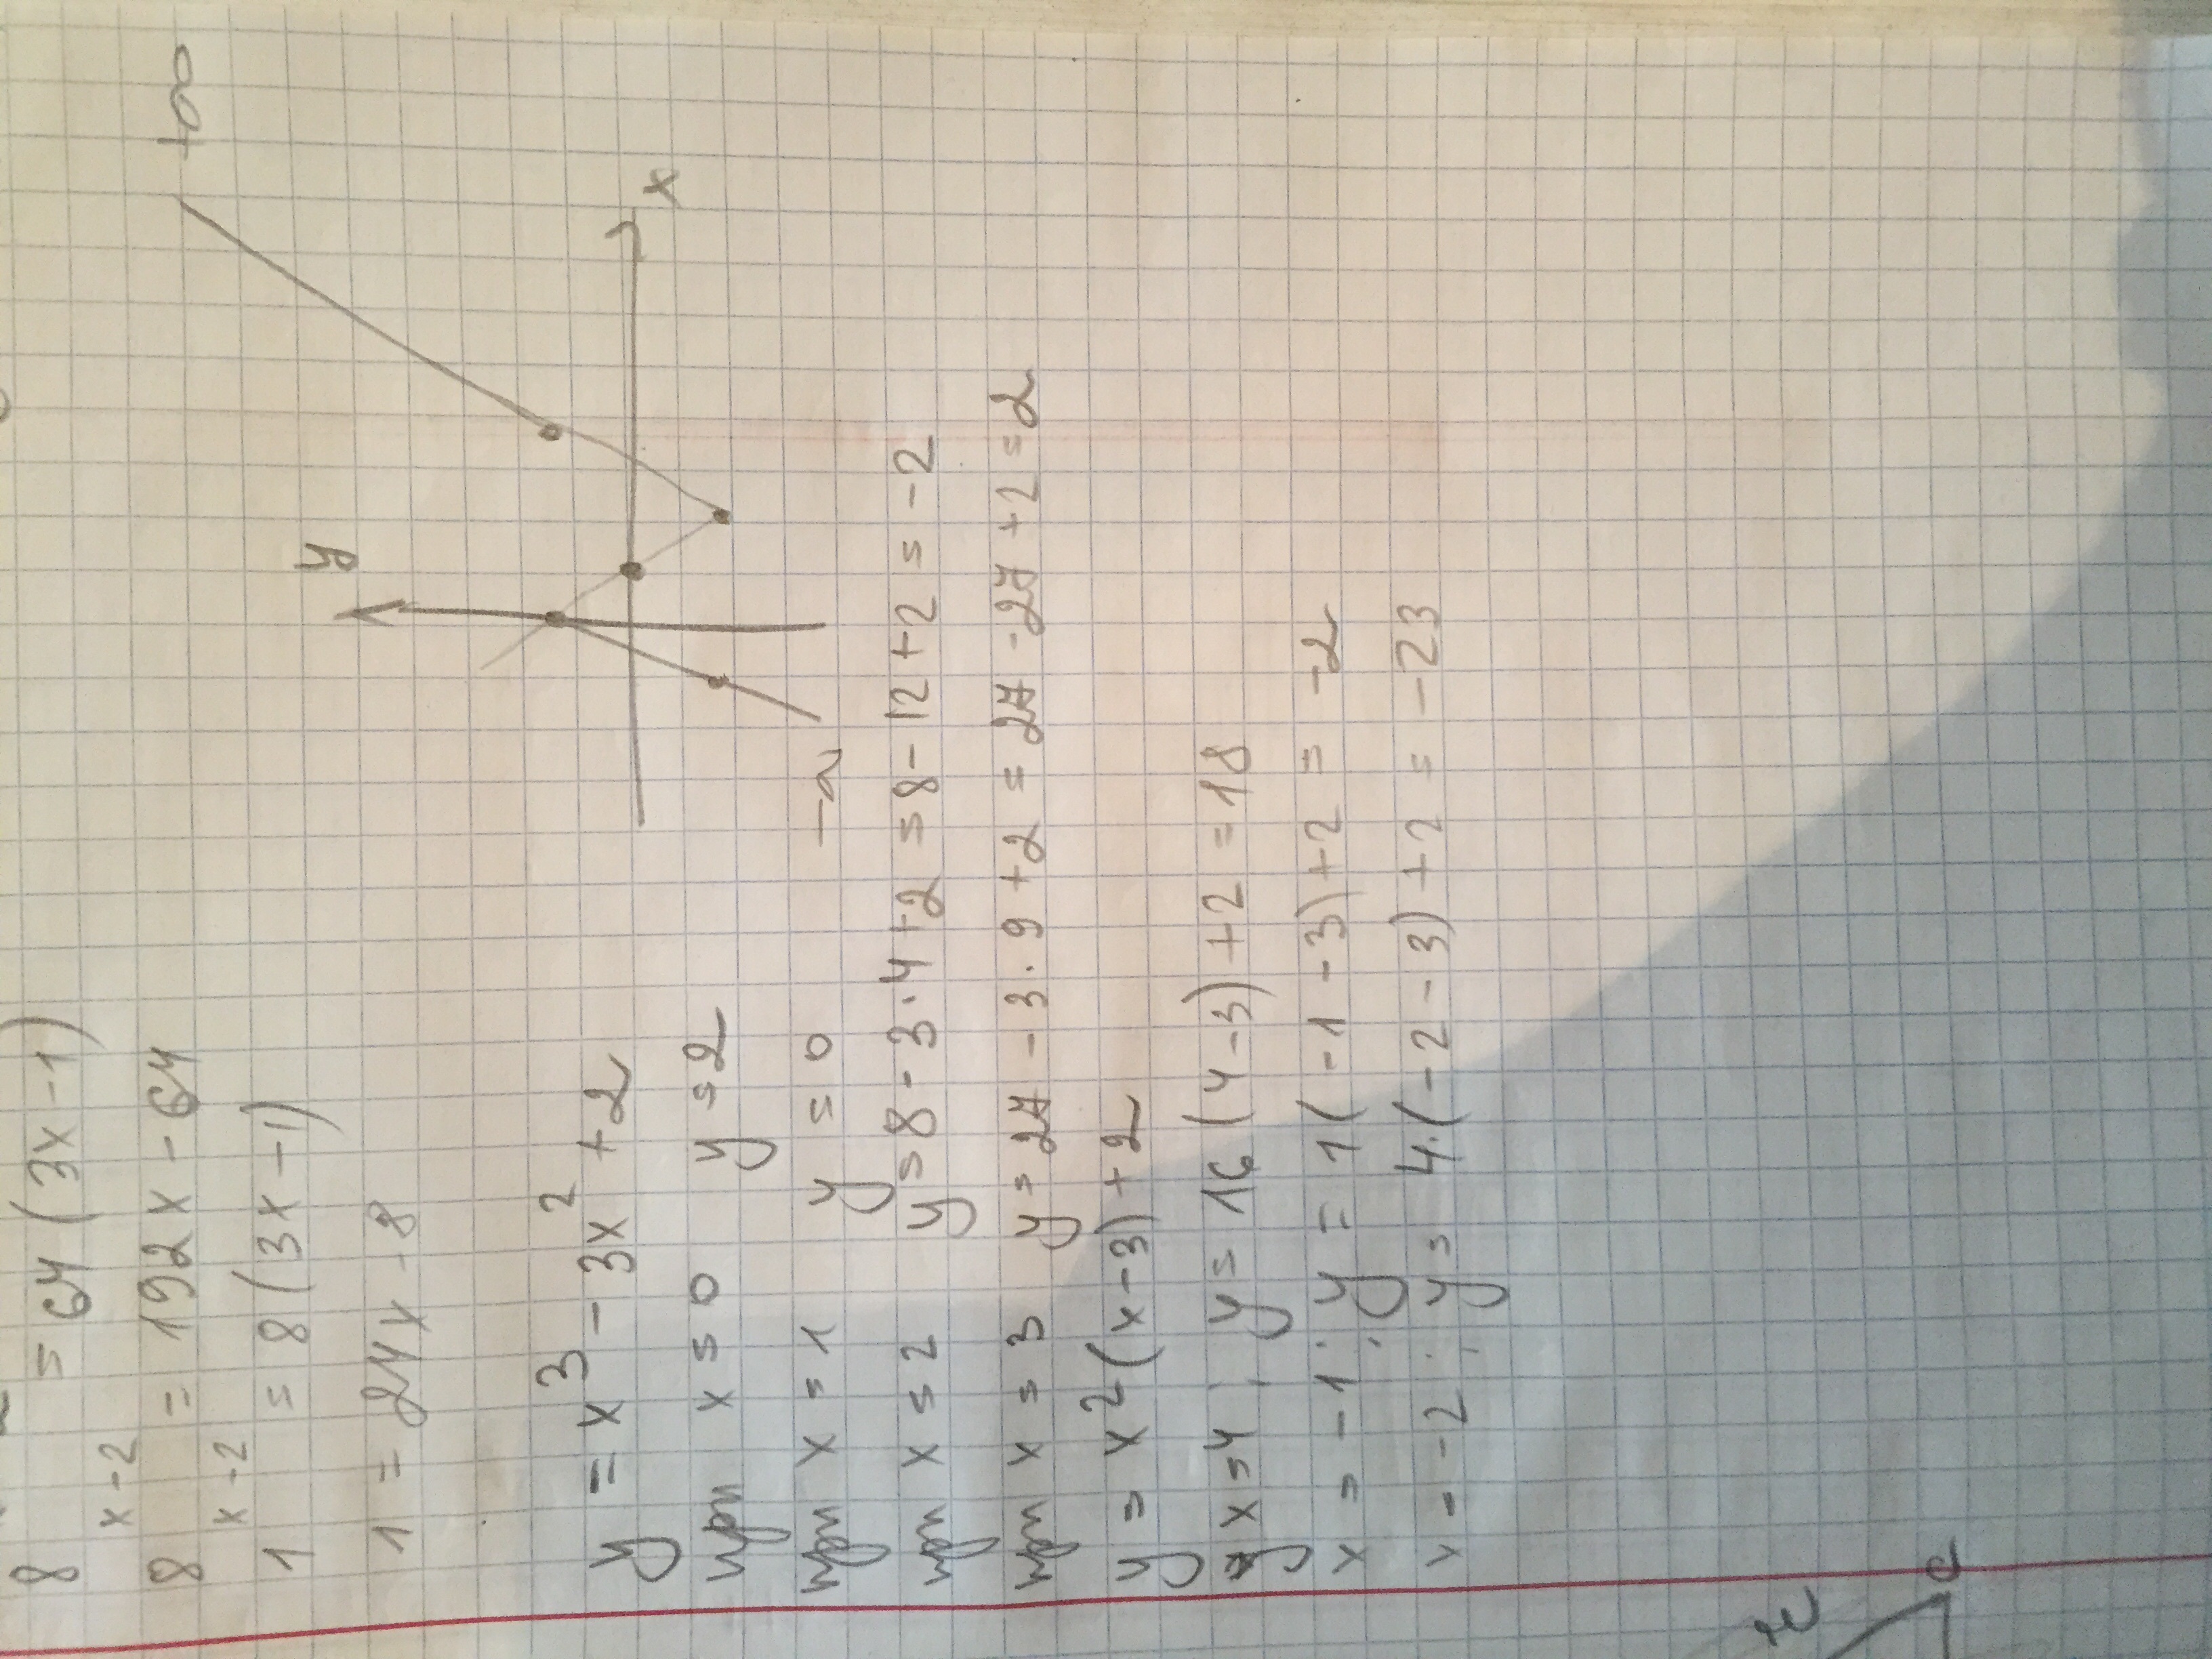 8 = 64 (3x-1)
x-2
8 = 192x - 64
x-2
1 = 8 (3x-1)
1 = 24x - 8
+∞
y
x
-∞
y = x³ - 3x² + 2
при x = 0 y = 2
при x = 1 y = 0
при x = 2 y = 8 - 3·4 + 2 = 8 - 12 + 2 = -2
при x = 3 y = 27 - 3·9 + 2 = 27 - 27 + 2 = 2
y = x²(x-3) + 2
x = 4, y = 16 (4-3) + 2 = 18
x = -1; y = 1(-1-3) + 2 = -2
x = -2; y = 4·(-2-3) + 2 = -23